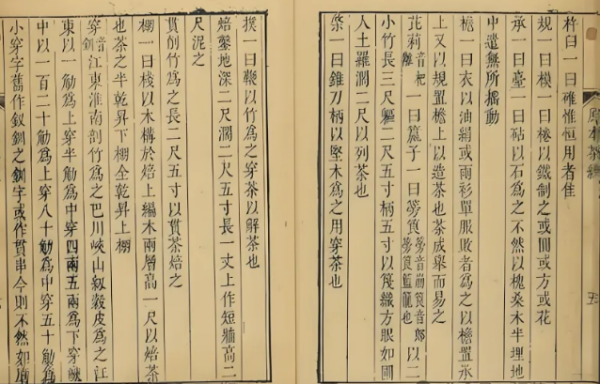 杵臼一曰碓惟恒用者佳
規一曰模一曰棬以鐵制之或圓或方或花
承一曰臺一曰砧以石為之不然以槐桑木半埋地
中遣無所搖動
檐一曰衣以油絹或雨衫單服敗者為之以檐置承
上又以規置檐上以造茶也茶成舉而易之
芘莉音杷離一曰籝子一曰篣筤篣音崩筤音郎篣筤籃籠也以二
小竹長三尺軀二尺五寸柄五寸以篾織方眼如圃
人土羅濶二尺以列茶也
棨一曰錐刀柄以堅木為之用穿茶也
撲一曰鞭以竹為之穿茶以解茶也
焙鑿地深二尺濶二尺五寸長一丈上作短牆高二
尺泥之
貫削竹為之長二尺五寸以貫茶焙之
棚一曰棧以木構於焙上編木兩層高一尺以焙茶
也茶之半乾昇下棚全乾昇上棚
穿音釧江東淮南剖竹為之巴川峽山紉穀皮為之江
東以一觔為上穿半觔為中穿四兩五兩為下穿峽
中以一百二十觔為上穿八十觔為中穿五十觔為
小穿字舊作釵釧之釧字或作貫串今則不然如磨